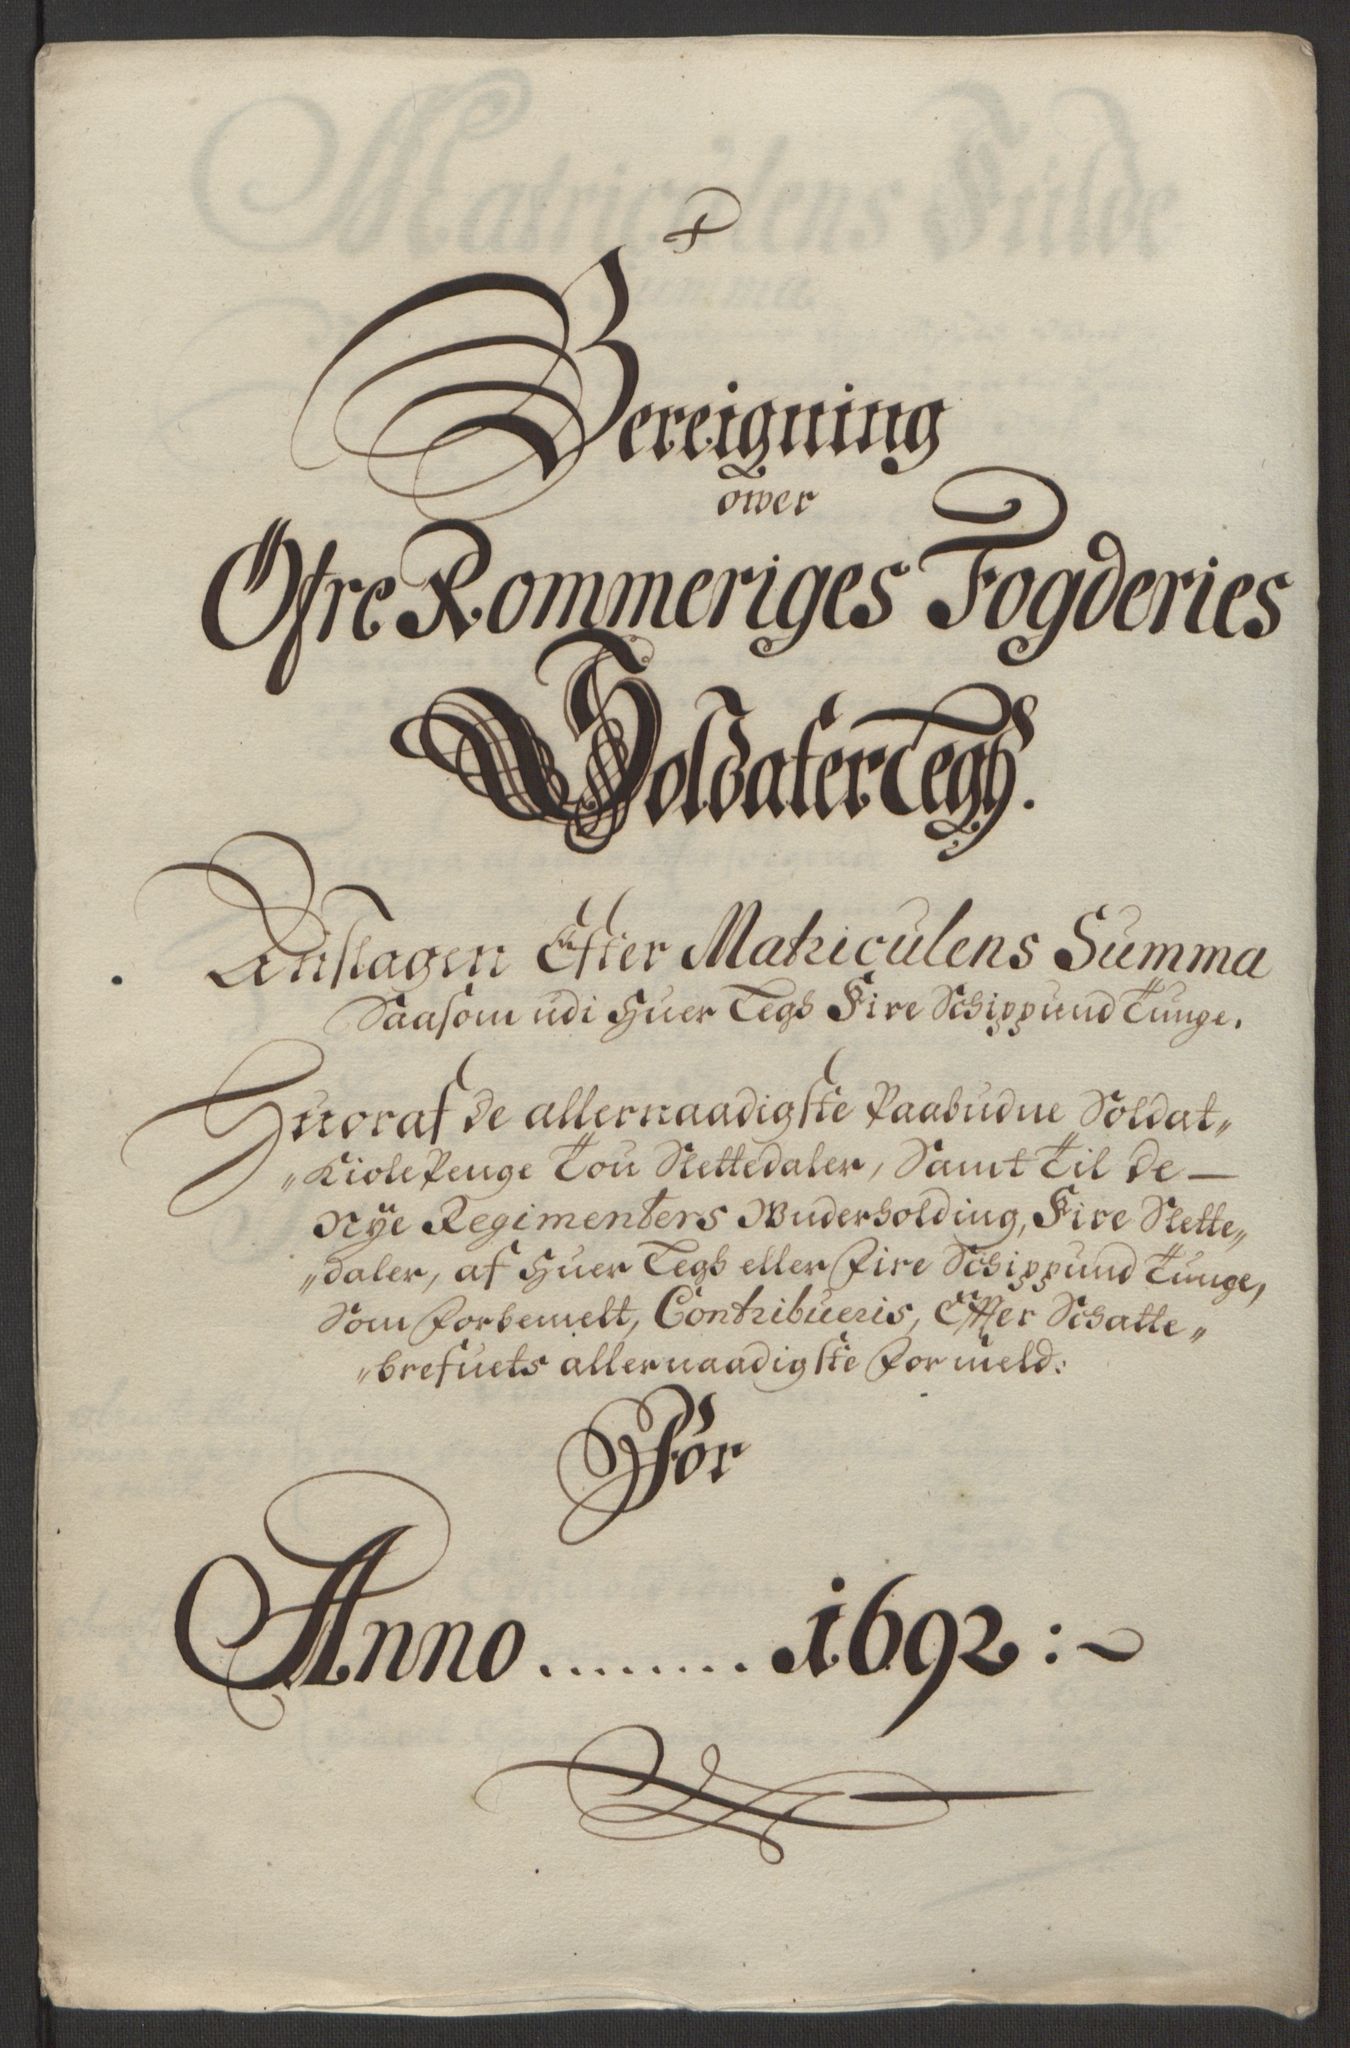 Bereigning
ower
Öfre Rommeriges Fogderies
Soldater Legh.
Anslagen Efter Matriculens Summa
Saasom udi Huer Legh Fire Schippund Tunge.
Huoraf de allernaadigste Paabudne Soldat„
„Kiole Penge Tou Slettedaler, Samt Til de —
Nÿe Regimenters Underholding, Fire Slette„
„daler, af Huer Legh eller Fire Schippund Tunge,
Som forbemelt, Contribueris, Effter Schatte„
„brefuets allernaadigste formeld:
För
Anno ........ 1692 :~